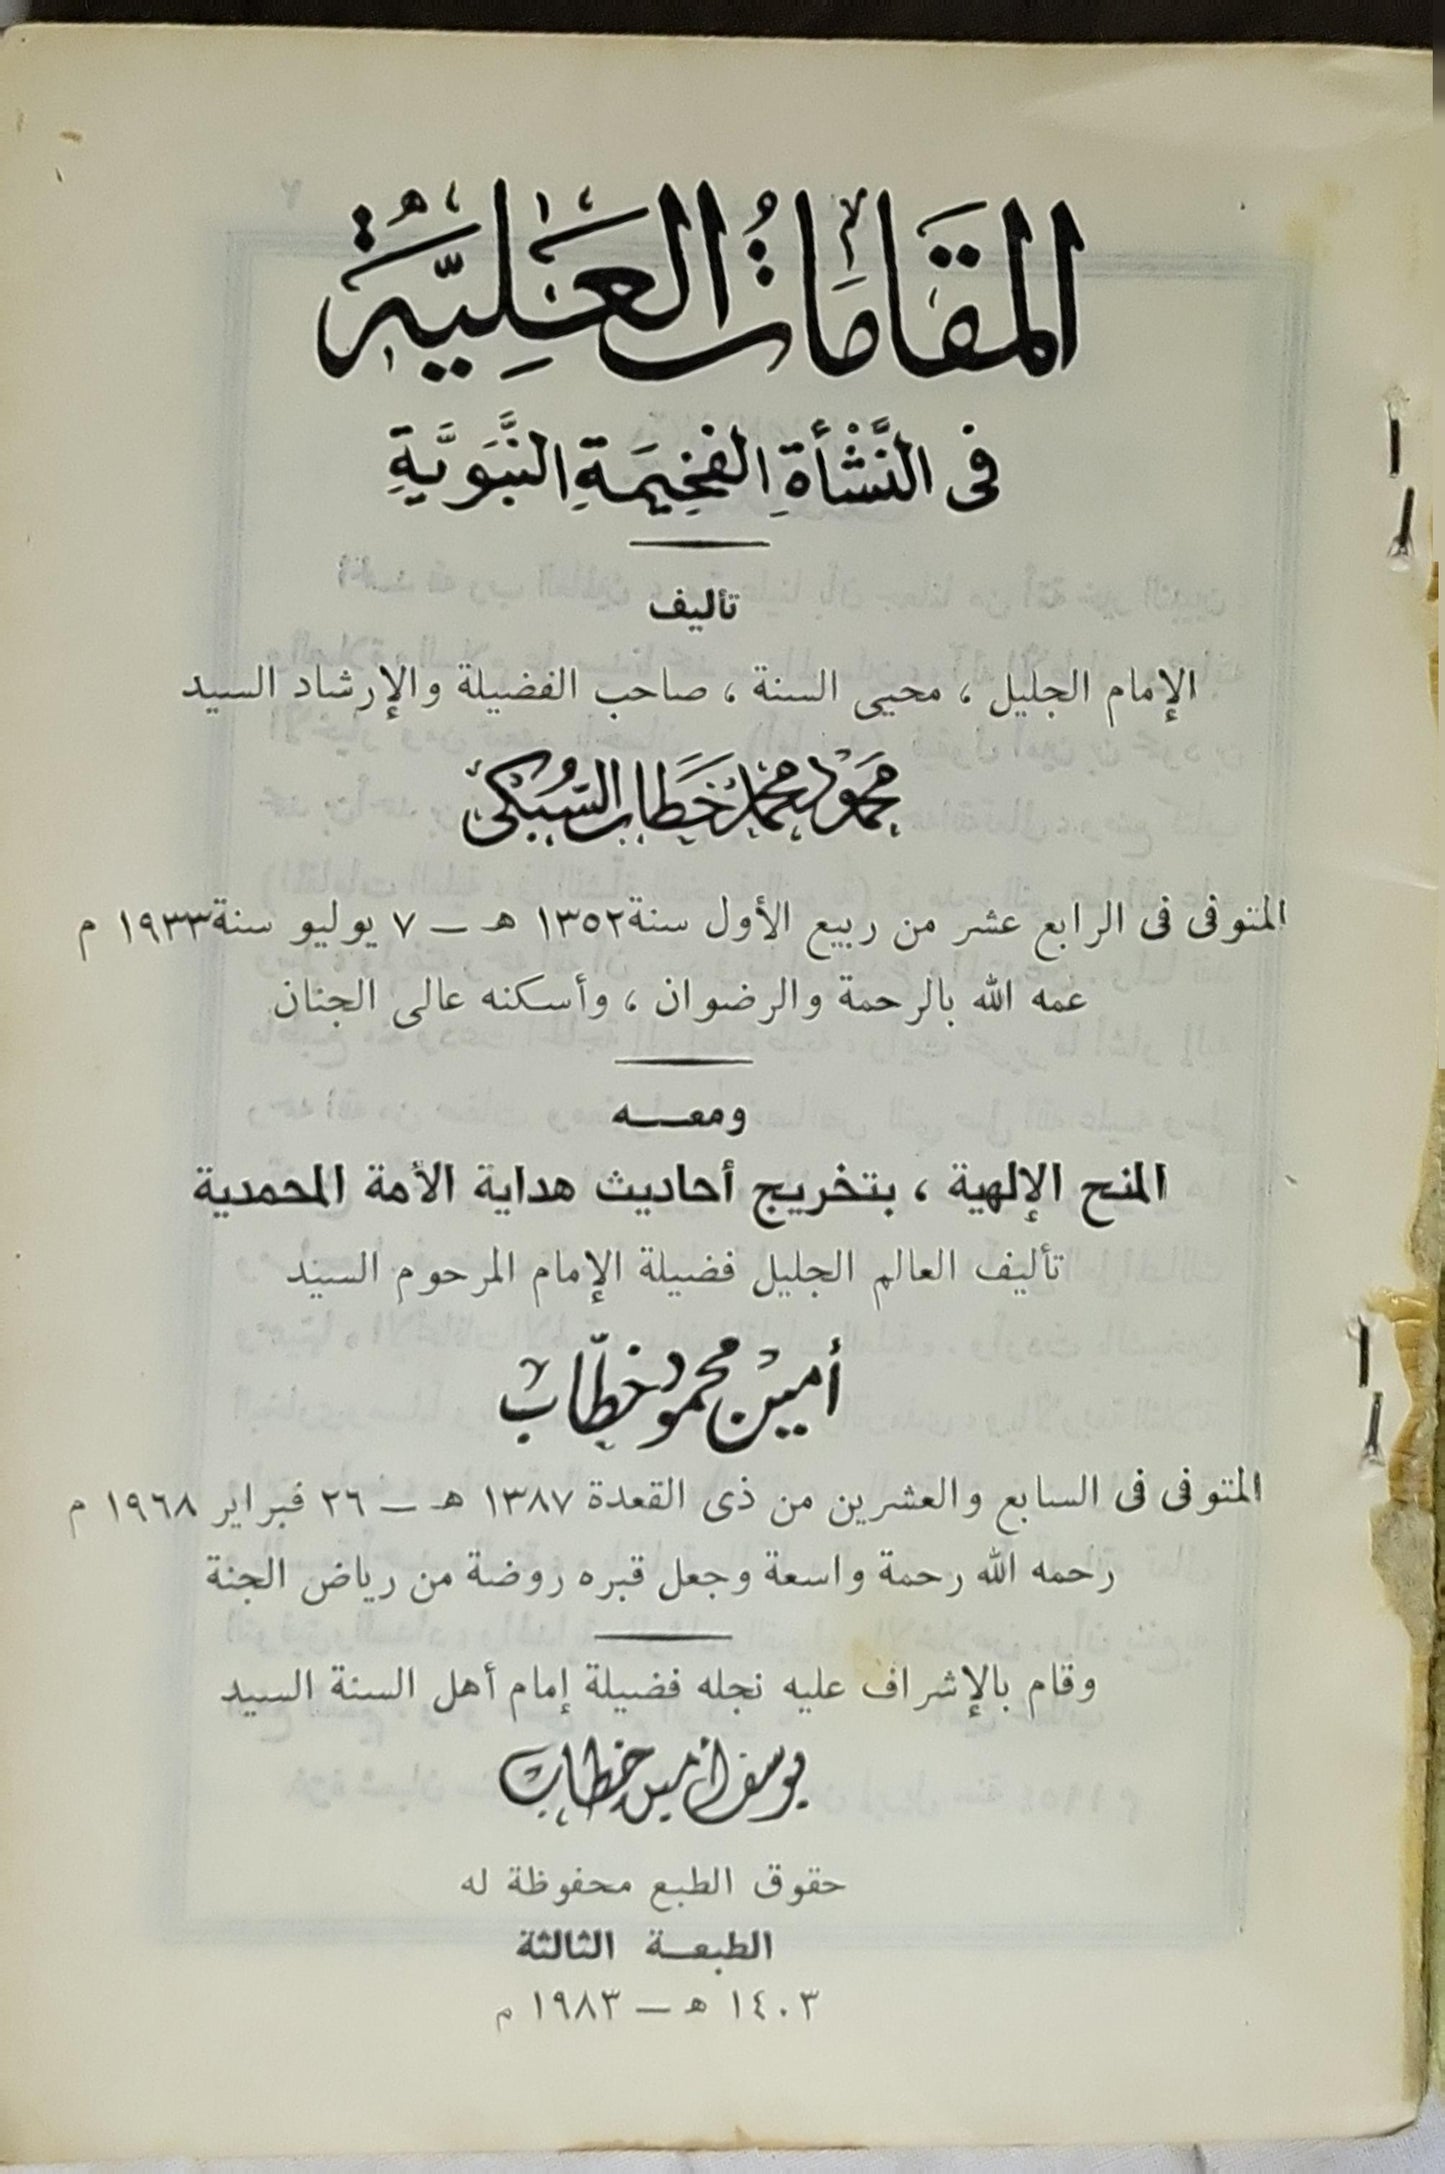 المقَامَاتُ العَلِيَّةُ
فى النَّشْأَةِ الفَخِيمَةِ النَّبَوِيَّةِ
تأليف
الإمام الجليل ، محيى السنة ، صاحب الفضيلة والإرشاد السيد
محمود محمد خطاب السبكى
المتوفى فى الرابع عشر من ربيع الأول سنة ١٣٥٢ هـ — ٧ يوليو سنة ١٩٣٣ م
عمه الله بالرحمة والرضوان ، وأسكنه عالى الجنان
ومعـــه
المنح الإلهية ، بتخريج أحاديث هداية الأمة المحمدية
تأليف العالم الجليل فضيلة الإمام المرحوم السيد
أمين محمود خطاب
المتوفى فى السابع والعشرين من ذى القعدة ١٣٨٧ هـ — ٢٦ فبراير ١٩٦٨ م
رحمه الله رحمة واسعة وجعل قبره روضة من رياض الجنة
وقام بالإشراف عليه نجله فضيلة إمام أهل السنة السيد
يوسف أمين خطاب
حقوق الطبع محفوظة له
الطبعـة الثالثة
١٤٠٣ هـ — ١٩٨٣ م